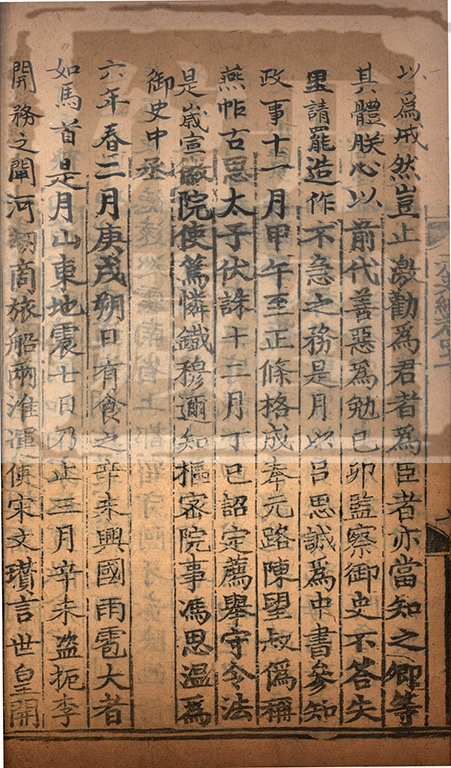 以爲戒然豈止激勸爲君者爲臣者亦當知之卿等
其體朕心以前代善惡爲勉己卯監察御史不答失
里請罷造作不急之務是月以吕思誠爲中書參知
政事十一月甲午至正條格成奉元路陳望叔僞稱
燕帖古思太子伏誅十二月丁巳詔定薦舉守令法
是歲宣徽院使篤憐鐵穆邇知樞密院事馮思温爲
御史中丞
六年春二月庚戌朔日有食之辛未興國雨雹大者
如馬首是月山東地震七日乃止三月辛未盜扼李
開務之閘河劫商旅船兩淮運使宋文瓚言世皇開